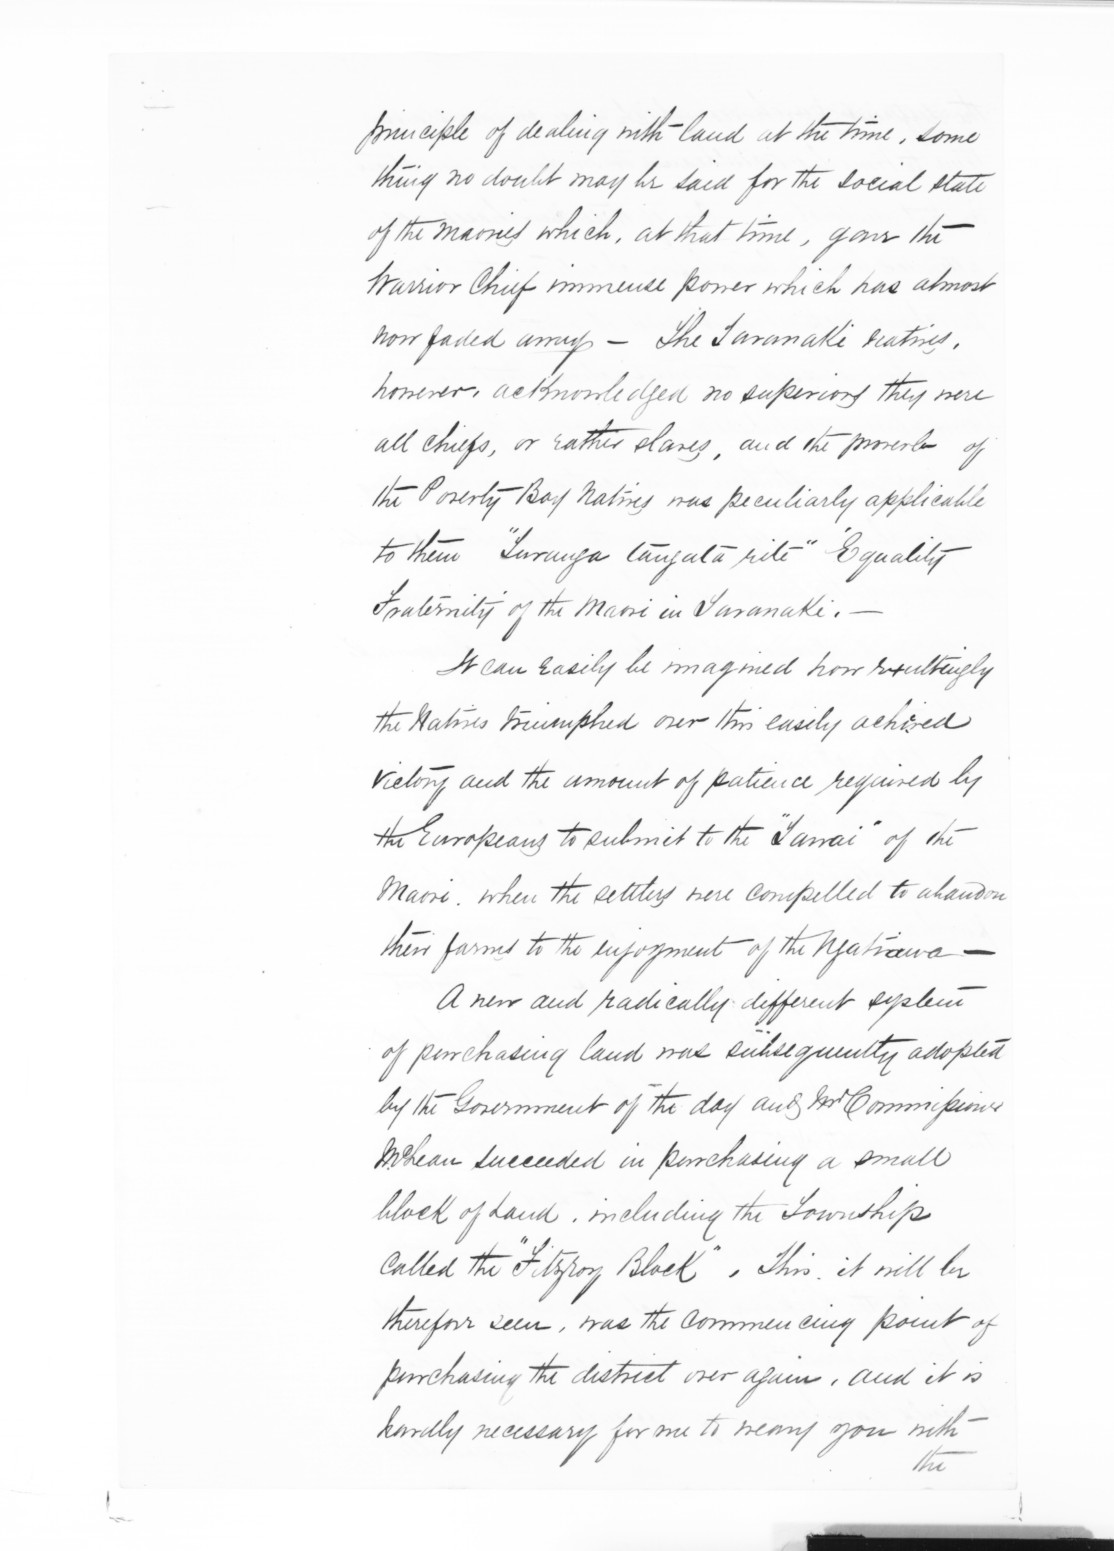 principle of dealing with land at the time, some
thing no doubt may be said for the social state
of the maories which, at that time, gave the
Warrior Chief immense power which has almost
now faded away — The Taranaki Natives,
however, acknowledged no superiors they were
all chiefs, or rather slaves, and the proverb of
the Poverty Bay Natives was peculiarly applicable
to them "Turanga tangata rite" "Equality
Fraternity" of the Maori in Taranaki. —
It can easily be imagined how exultingly
the Natives triumphed over this easily achived
victory and the amount of patience required by
the Europeans to submit to the "Tawai" of the
Maori. when the settlers were compelled to abandon
their farms to the enjoyment of the Ngatiawa —
A new and radically different system
of purchasing land was subsequently adopted
by the Government of the day and Mr Commissioner
McLean succeeded in purchasing a small
block of Land, including the Township
called the "Fitzroy Block", This, it will be
therefore seen, was the commencing point of
purchasing the district over again, and it is
hardly necessary for me to weary you with
the